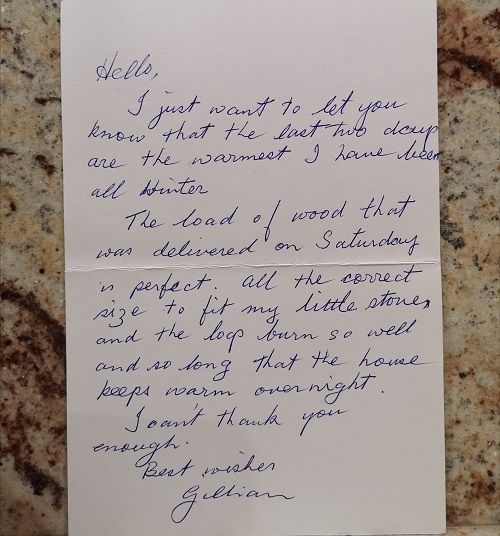 Hello,
I just want to let you
know that the last two days
are the warmest I have been
all Winter
The load of wood that
was delivered on Saturday
is perfect. All the correct
size to fit my little stove,
and the logs burn so well
and so long that the house
keeps warm overnight.
I can't thank you
enough.
Best wishes
Gillian